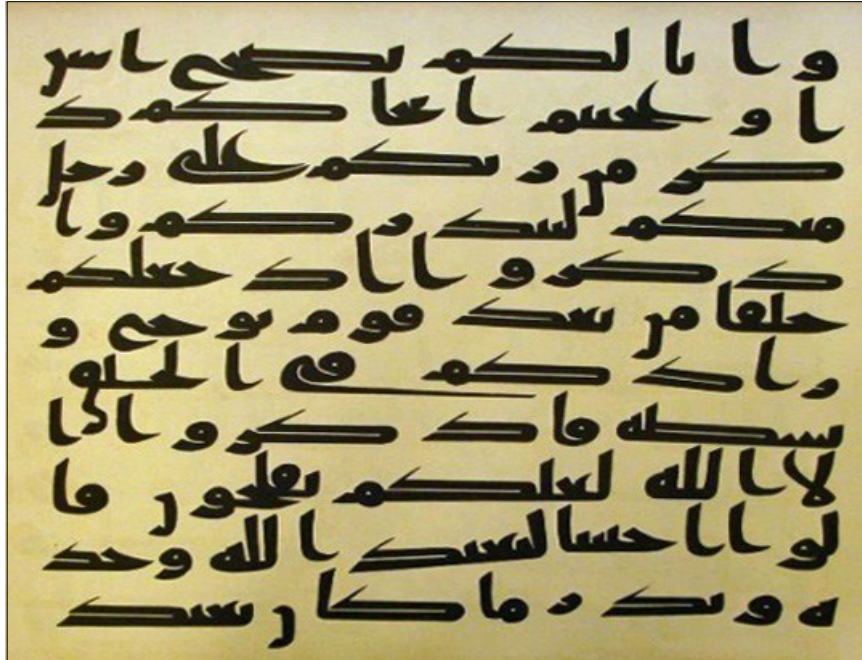 وانا لكم نصح امين
اوعجبتم ان جاكم ذ
كر من ربكم على رجل
منكم لينذركم وا
ذكروا اذ جعلكم
خلفا من بعد قوم نوح و
زادكم في الخلق
بسطه فاذكروا ا
لا الله لعلكم تفلحون قا
لوا اجئتنا لنعبد الله وحد
ه ونذر ما كان يعبد